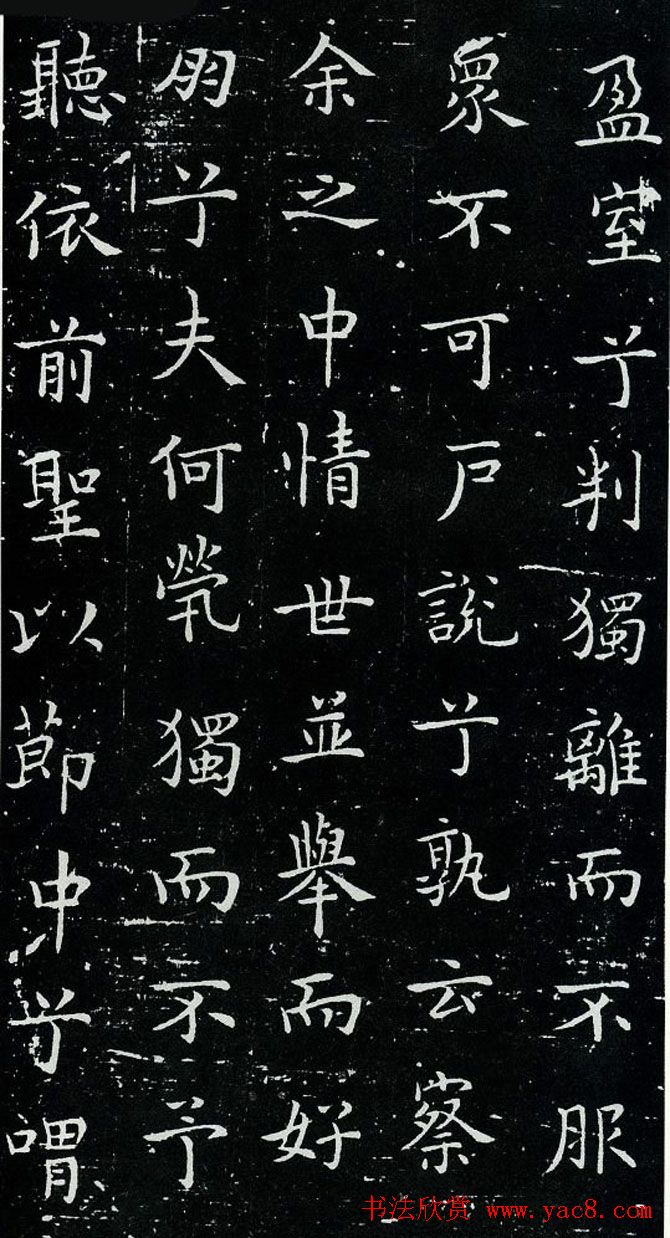 盈室兮判獨離而不服
衆不可戶說兮孰云察
余之中情世並舉而好
朋兮夫何煢獨而不予
聽依前聖以節中兮喟
书法欣赏 www.yac8.com